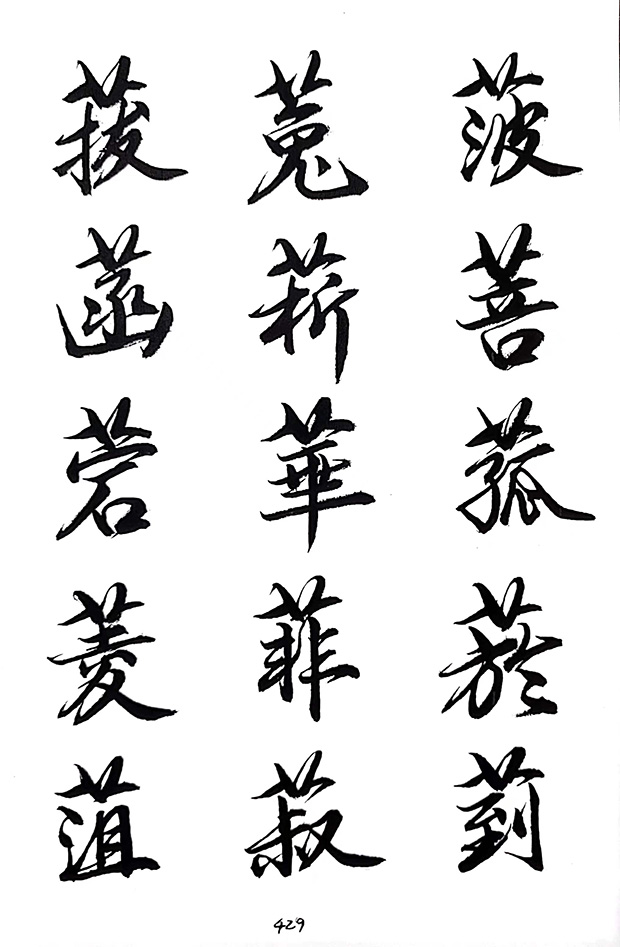 菠菩菰菸菿
菟菥華菲菽
菝菡菪菱菹
429